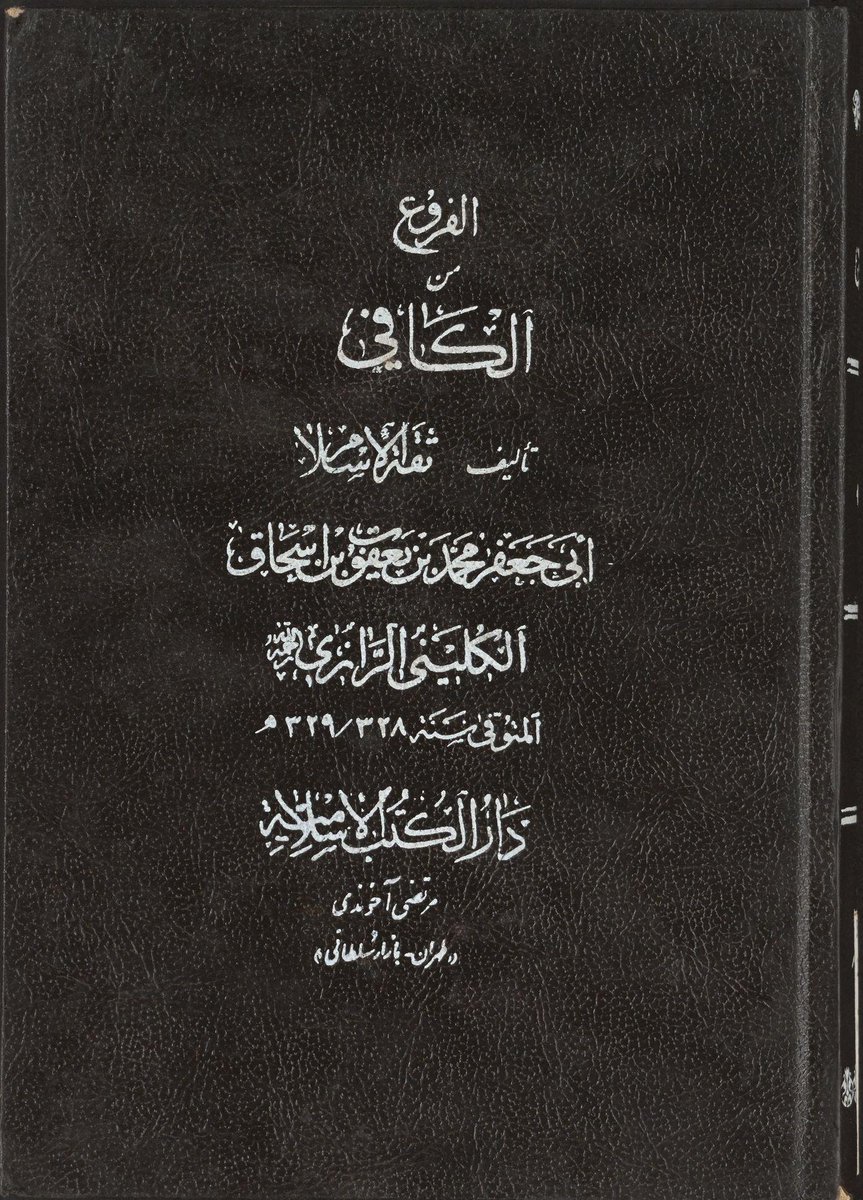 الفروع
من
الكافي
تأليف ثقة الإسلام
أبي جعفر محمد بن يعقوب بن إسحاق
الكليني الرازي رحمه الله
المتوفى سنة ٣٢٨/٣٢٩ ه
دار الكتب الإسلامية
مرتضى آخوندي
«طهران - بازار سلطاني»